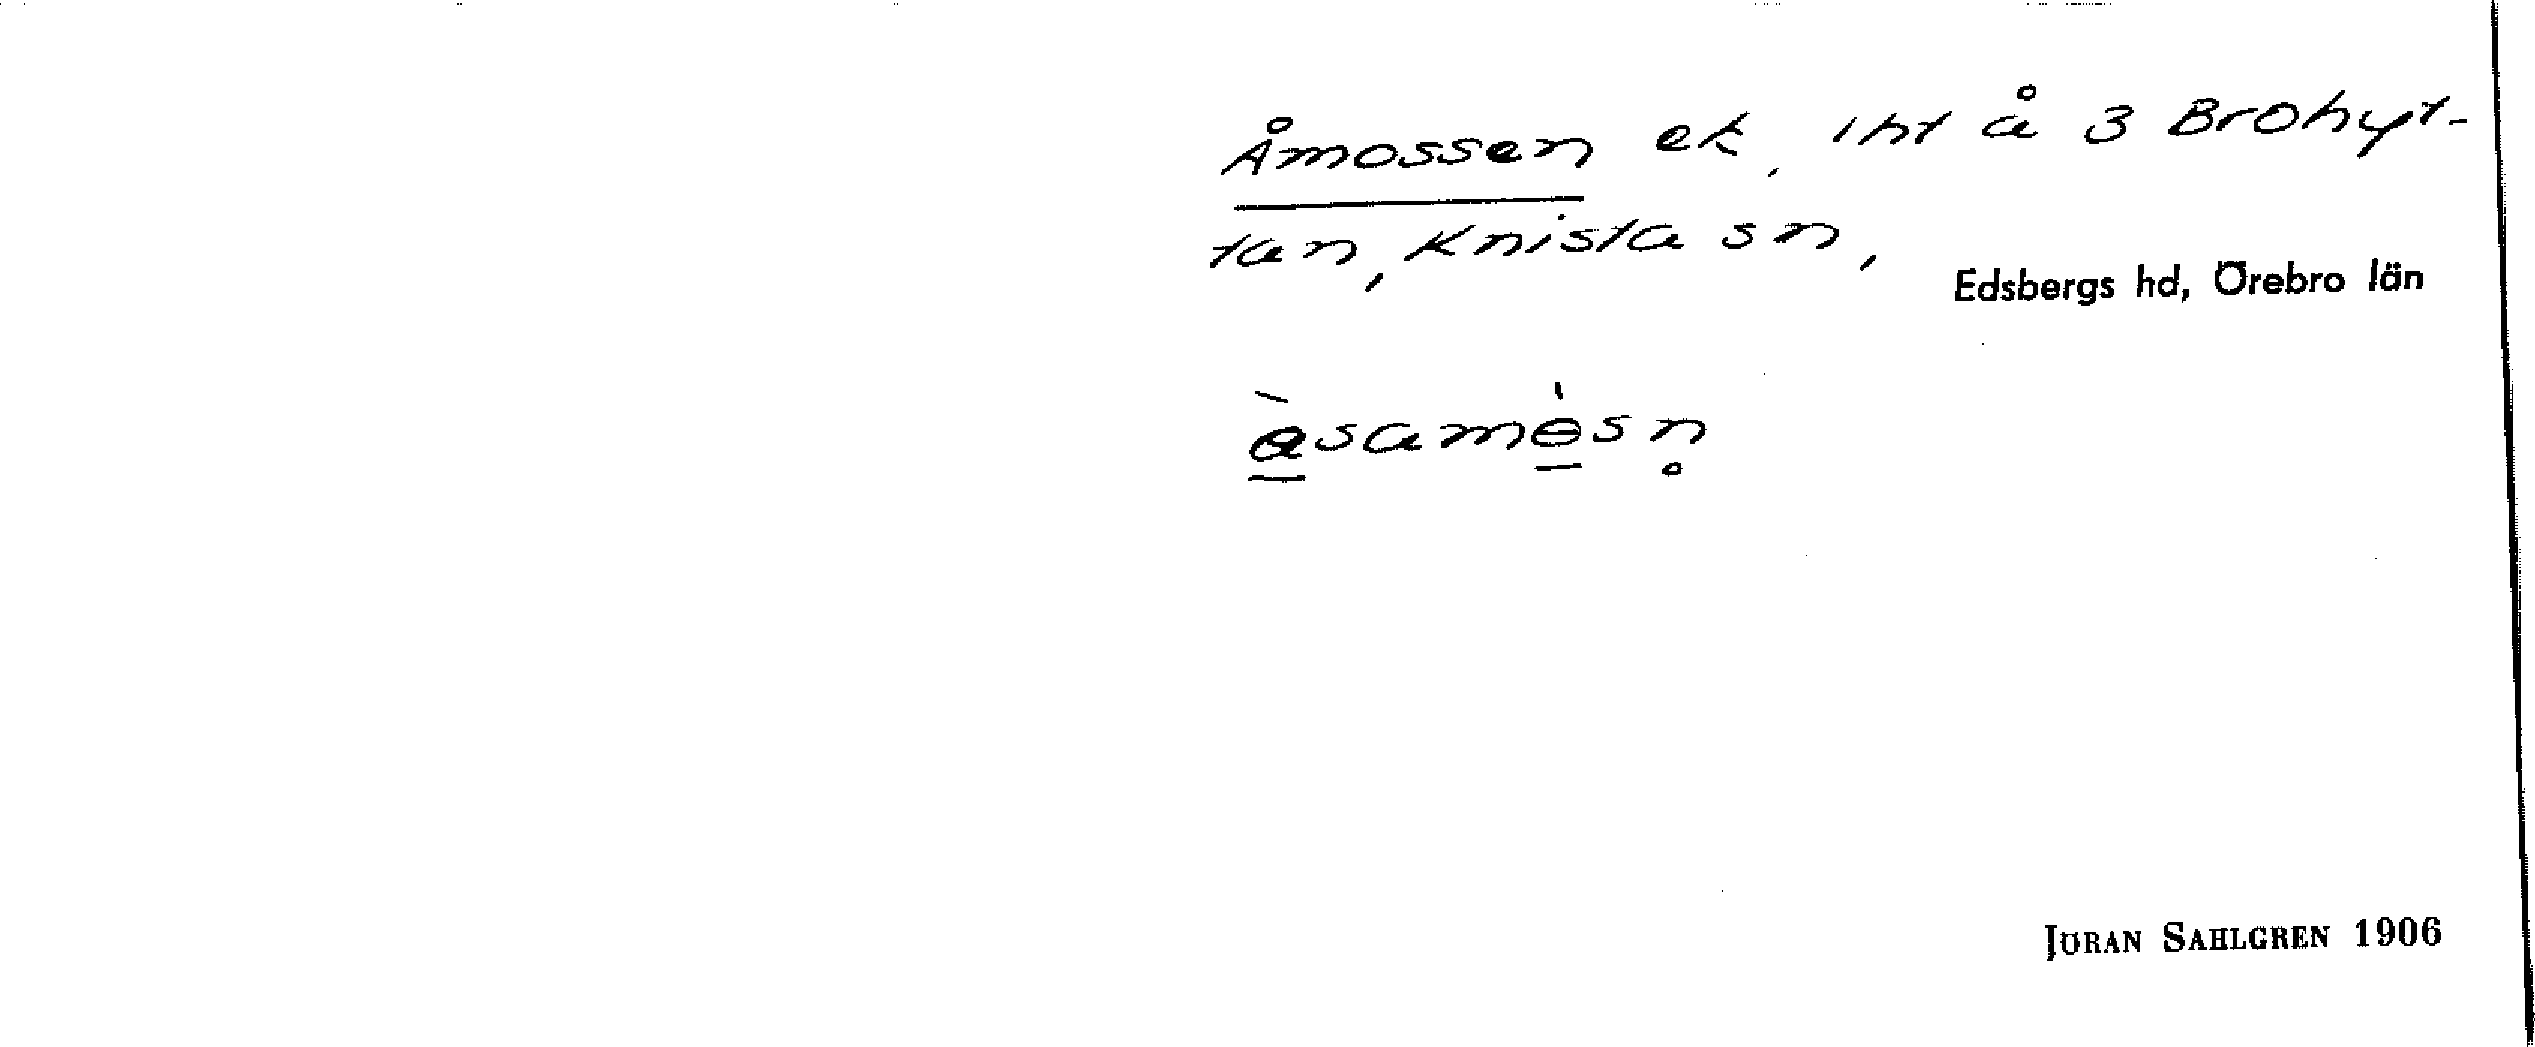 Åmossen ek, iht å 3 Brohyt-
tan, Knista sn,
Edsbergs hd, Örebro län
JÖRAN SAHLGREN 1906